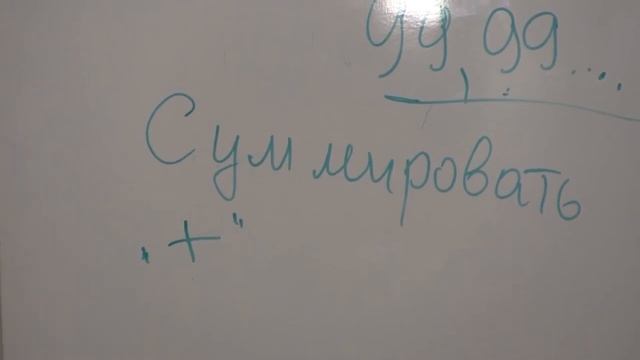 99 99....
Суммировать
„+"